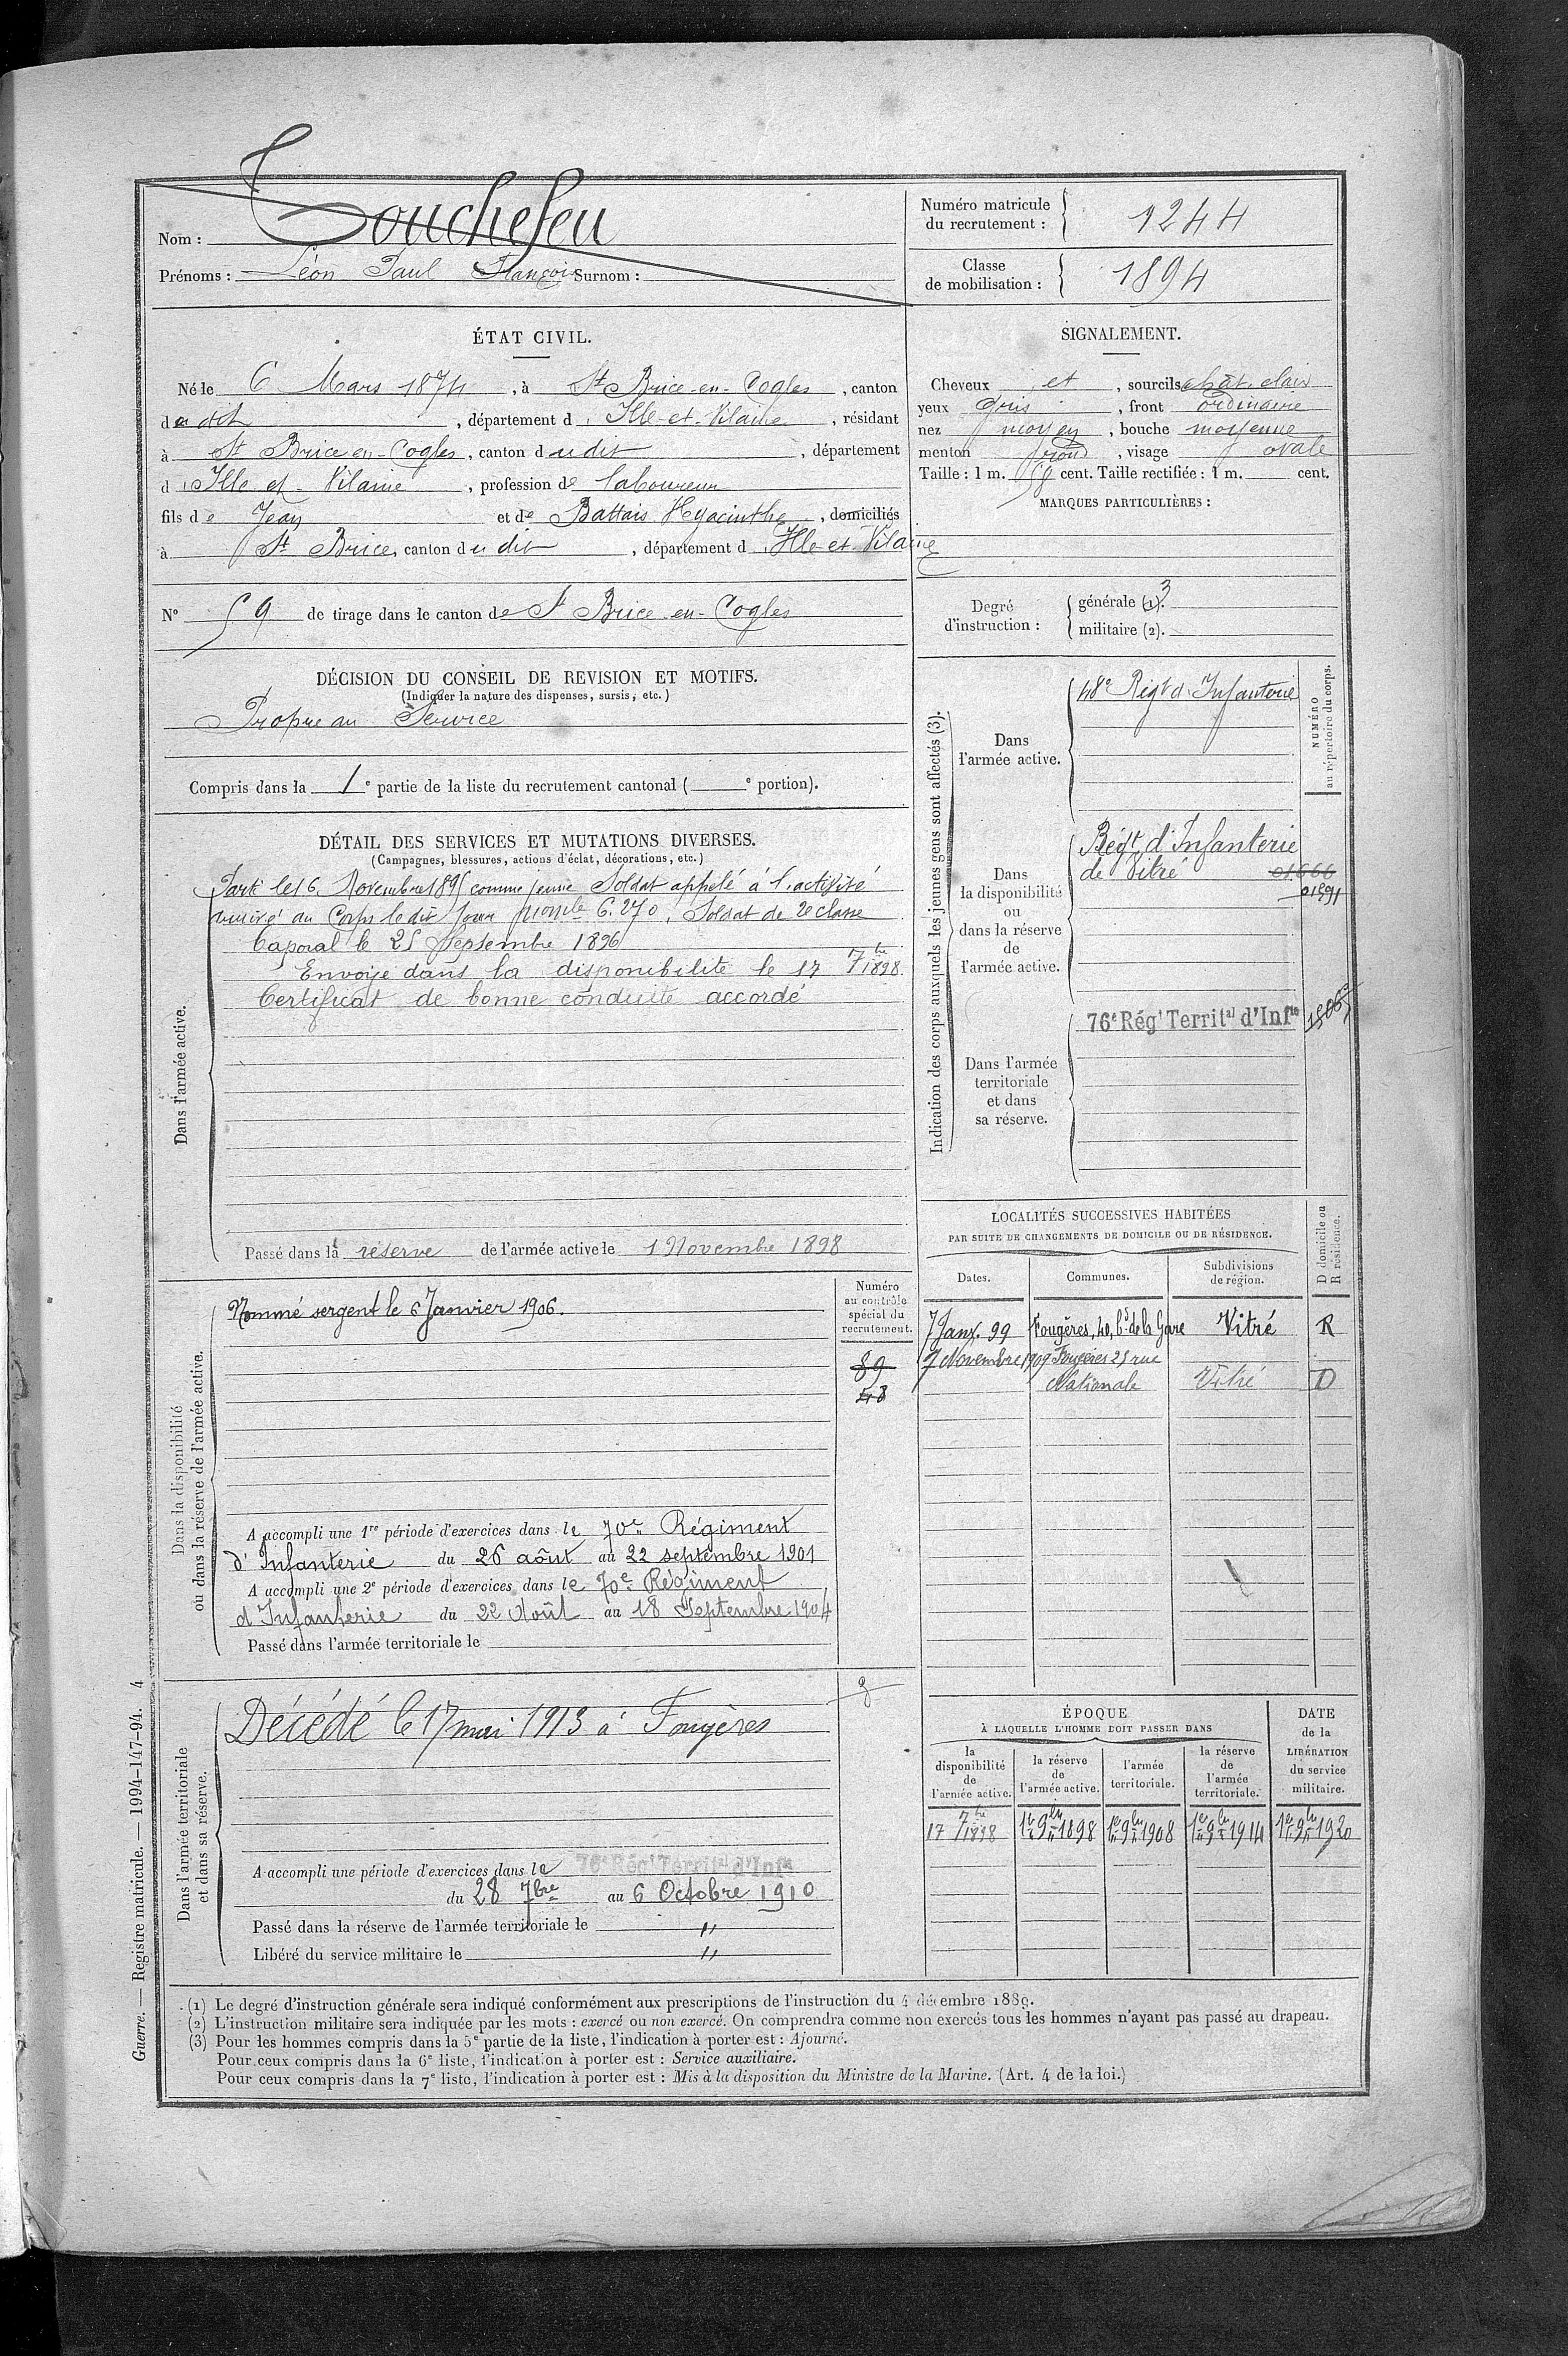 Nom : Touchefeu
Prénoms : Léon Paul François Surnom :
Numéro matricule
du recrutement : 1244
Classe
de mobilisation : 1894
ÉTAT CIVIL.
Né le 6 Mars 1874, à St Brice-en-Cogles, canton
du dit, département d'Ille-et-Vilaine, résidant
à St Brice en Cogles, canton dudit, département
d'Ille et Vilaine, profession de laboureur
fils de Jean et de Battais Hyacinthe, domiciliés
à St Brice, canton du dit, département d'Ille-et-Vilaine
N° 59 de tirage dans le canton de St Brice-en-Cogles
SIGNALEMENT.
Cheveux et, sourcils chât. clair
yeux gris, front ordinaire
nez moyen, bouche moyenne
menton rond, visage ovale
Taille : 1 m. 58 cent. Taille rectifiée : 1 m. cent.
MARQUES PARTICULIÈRES :
Degré
d'instruction :
générale (1). 3
militaire (2).
DÉCISION DU CONSEIL DE REVISION ET MOTIFS.
(Indiquer la nature des dispenses, sursis, etc.)
Propre au Service
Compris dans la 1e partie de la liste du recrutement cantonal ( e portion).
DÉTAIL DES SERVICES ET MUTATIONS DIVERSES.
(Campagnes, blessures, actions d'éclat, décorations, etc.)
Dans l'armée active.
Parti le 16 Novembre 1895 comme jeune Soldat appelé à l'activité
arrivé au Corps le dit jour no mle 6.270, Soldat de 2e classe
Caporal le 25 Septembre 1896
Envoyé dans la disponibilité le 17 7bre 1898.
Certificat de bonne conduite accordé
Passé dans la réserve de l'armée active le 1 Novembre 1898
Indication des corps auxquels les jeunes gens sont affectés (3).
NUMÉRO
au répertoire du corps.
Dans
l'armée active.
48e Régt d'Infanterie
Dans
la disponibilité
ou
dans la réserve
de
l'armée active.
Régt d'Infanterie
de Vitré 01666
01891
Dans l'armée
territoriale
et dans
sa réserve.
76e Régt Territal d'Infie
Dans la disponibilité
ou dans la réserve de l'armée active.
Nommé sergent le 6 Janvier 1906.
Numéro
au contrôle
spécial du
recrutement.
89
48
A accompli une 1re période d'exercices dans le 70e Régiment
d'Infanterie du 26 août au 22 septembre 1901
A accompli une 2e période d'exercices dans le 70e Régiment
d'Infanterie du 22 Août au 18 Septembre 1904
Passé dans l'armée territoriale le
LOCALITÉS SUCCESSIVES HABITÉES
PAR SUITE DE CHANGEMENTS DE DOMICILE OU DE RÉSIDENCE.
D domicile ou
R résidence.
Dates. Communes. Subdivisions
de région.
7 Janv. 99 Fougères, 40, bd de la Gare Vitré R
7 Novembre 1909 Fougères 25 rue
Nationale Vitré D
Dans l'armée territoriale
et dans sa réserve.
Décédé le 17 mai 1913 à Fougères
A accompli une période d'exercices dans le 76e Régt Territal d'Infie
du 28 7bre au 6 Octobre 1910
Passé dans la réserve de l'armée territoriale le "
Libéré du service militaire le "
ÉPOQUE
À LAQUELLE L'HOMME DOIT PASSER DANS
DATE
de la
LIBÉRATION
du service
militaire.
la
disponibilité
de
l'armée active.
la réserve
de
l'armée active.
l'armée
territoriale.
la réserve
de
l'armée
territoriale.
17 7bre 1898 1er 9bre 1898 1er 9bre 1908 1er 9bre 1914 1er 9bre 1920
(1) Le degré d'instruction générale sera indiqué conformément aux prescriptions de l'instruction du 4 décembre 1889.
(2) L'instruction militaire sera indiquée par les mots : exercé ou non exercé. On comprendra comme non exercés tous les hommes n'ayant pas passé au drapeau.
(3) Pour les hommes compris dans la 5e partie de la liste, l'indication à porter est : Ajourné.
Pour ceux compris dans la 6e liste, l'indication à porter est : Service auxiliaire.
Pour ceux compris dans la 7e liste, l'indication à porter est : Mis à la disposition du Ministre de la Marine. (Art. 4 de la loi.)
Guerre. — Registre matricule. — 1994-147-94. 4